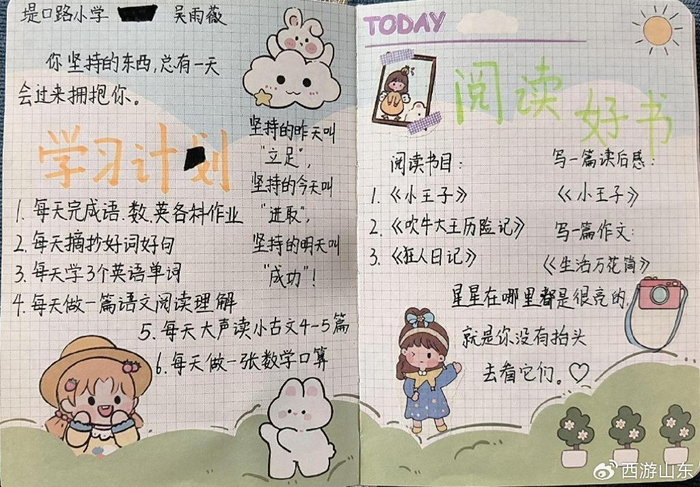 堤口路小学 吴雨薇
你坚持的东西,总有一天
会过来拥抱你。
学习计划
1. 每天完成语.数.英各科作业
2. 每天摘抄好词好句
3. 每天学3个英语单词
4. 每天做一篇语文阅读理解
5. 每天大声读小古文4-5篇
6. 每天做一张数学口算
坚持的昨天叫
"立足",
坚持的今天叫
"进取",
坚持的明天叫
"成功"!
TODAY
阅读好书
阅读书目:
1.《小王子》
2.《吹牛大王历险记》
3.《狂人日记》
写一篇读后感:
《小王子》
写一篇作文:
《生活万花筒》
星星在哪里都是很亮的,
就是你没有抬头
去看它们。♡
西游山东